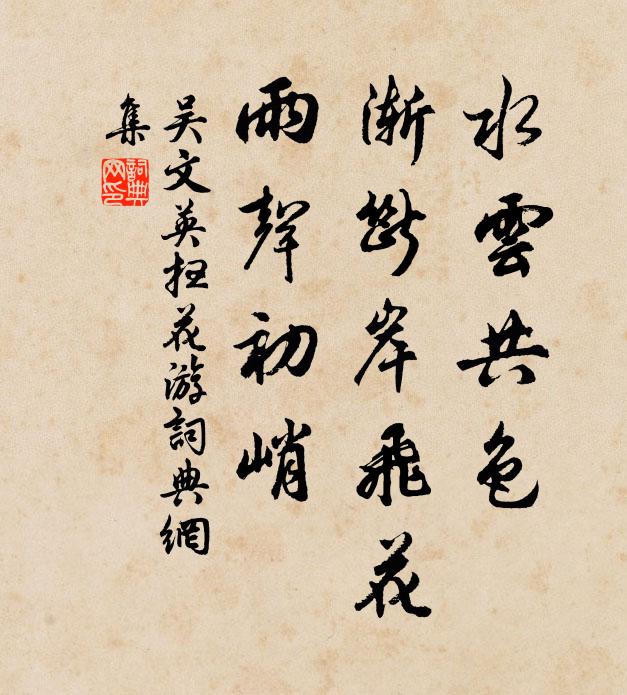 水雲共色
漸斷岸飛花
雨聲初峭
吴文英扫花游詞典網
集
詞典网印